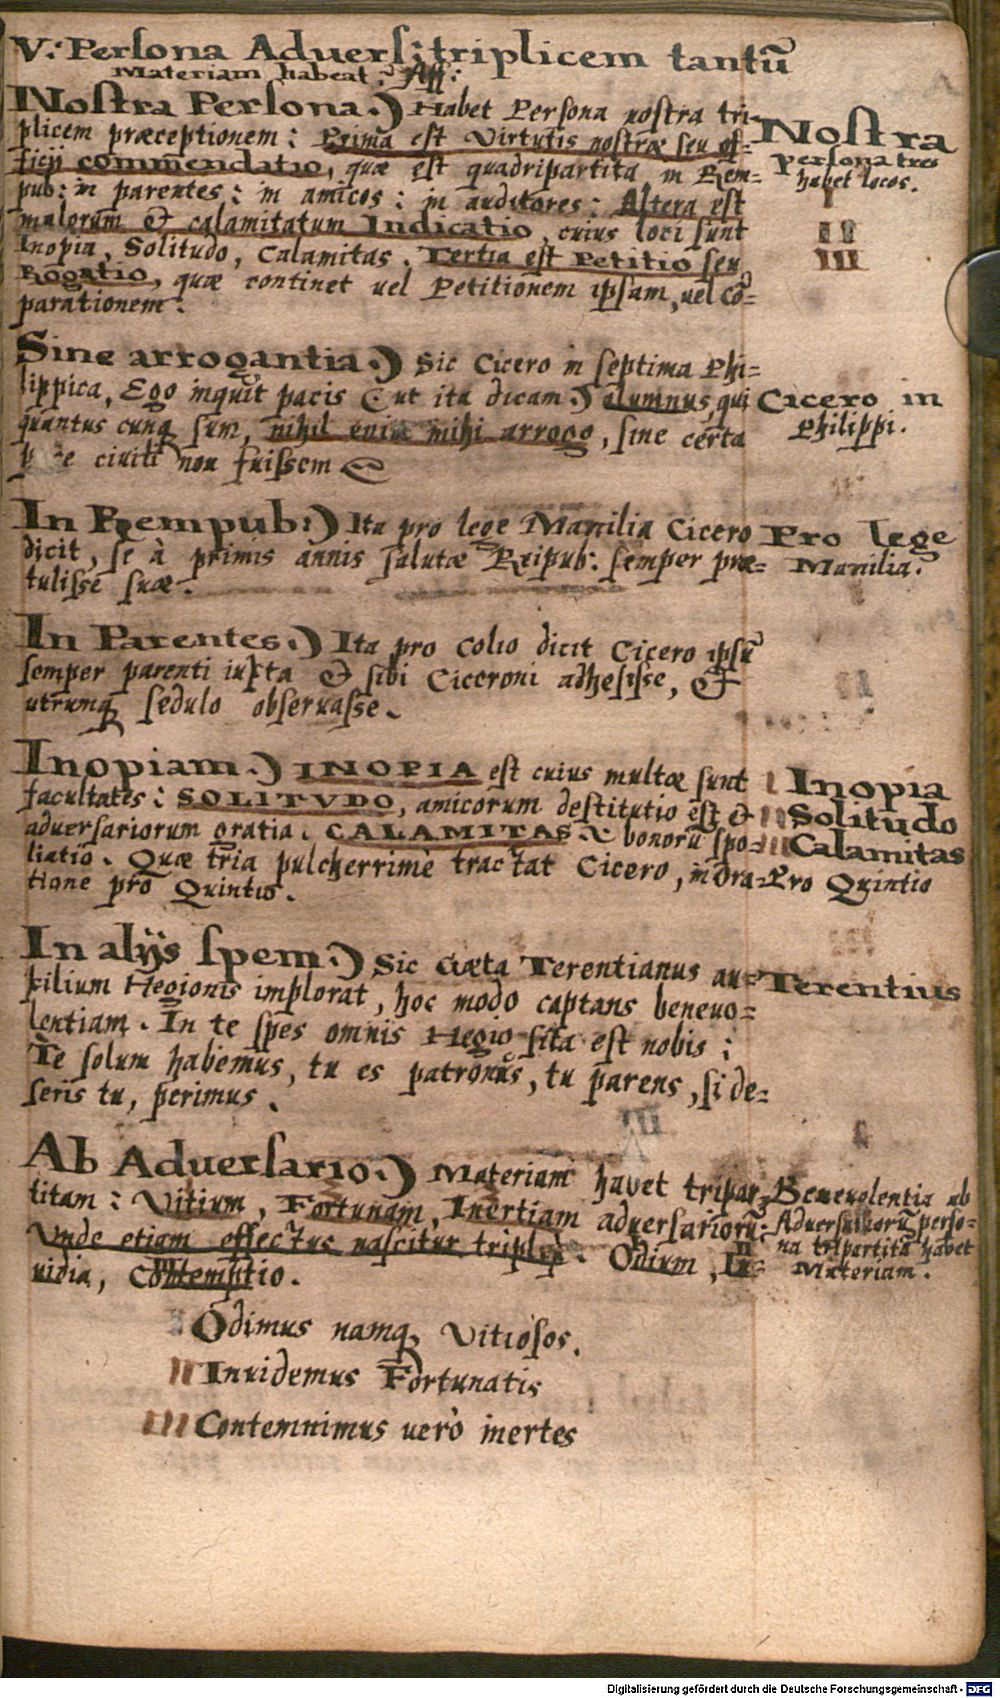 V: Persona Aduers: triplicem tantũ
Materiam habeat, Aff:
Nostra Persona.) Habet Persona nostra tri-
plicem præceptionem: Prima est Virtutis nostræ seu of-
ficij commendatio, quæ est quadripartita in Rem-
pub: in parentes: in amicos: in auditores: Altera est
malorum & calamitatum Indicatio, cuius loci sunt
Inopia, Solitudo, Calamitas. Tertia est Petitio seu
Rogatio, quæ continet uel Petitionem ipsam, uel cõ-
parationem.
Nostra
persona tres
habet locos.
I
II
III
Sine arrogantia.) Sic Cicero in septima Phi-
lippica, Ego inquit pacis (ut ita dicam) alumnus, qui
quantus cunq sum, nihil enim mihi arrogo, sine certa
ciuili non fuissem
Cicero in
Philippi.
In Rempub:) Ita pro lege Manilia Cicero
dicit, se à primis annis salutæ Reipub: semper præ-
tulisse suæ.
Pro lege
Manilia.
In Parentes.) Ita pro Cœlio dicit Cicero ipsũ
semper parenti iuxta & sibi Ciceroni adhesisse, &
utrumq sedulo obseruasse.
Inopiam.) INOPIA est cuius multæ sunt
facultates: SOLITVDO, amicorum destitutio est &
aduersariorum gratia. CALAMITAS bonorũ spo-
liatio. Quæ tria pulcherrimè tractat Cicero, in Ora-
tione pro Quintio.
I Inopia
II Solitudo
III Calamitas
Pro Quintio
In alijs spem.) Sic Gæta Terentianus au-
xilium Hegionis implorat, hoc modo captans beneuo-
lentiam. In te spes omnis Hegio sita est nobis:
Te solum habemus, tu es patronus, tu parens, si de-
seris tu, perimus.
Terentius
Ab Aduersario.) Materiam habet tripar-
titam: Vitium, Fortunam, Inertiam aduersariorũ:
Vnde etiam effectus nascitur triplex. Odium, In-
uidia, Contemptio.
Beneuolentia ab
Aduersariorũ perso-
na tripartitã habet
Materiam.
I Odimus namq Vitiosos.
II Inuidemus Fortunatis
III Contemnimus uerò inertes
Digitalisierung gefördert durch die Deutsche Forschungsgemeinschaft - DFG